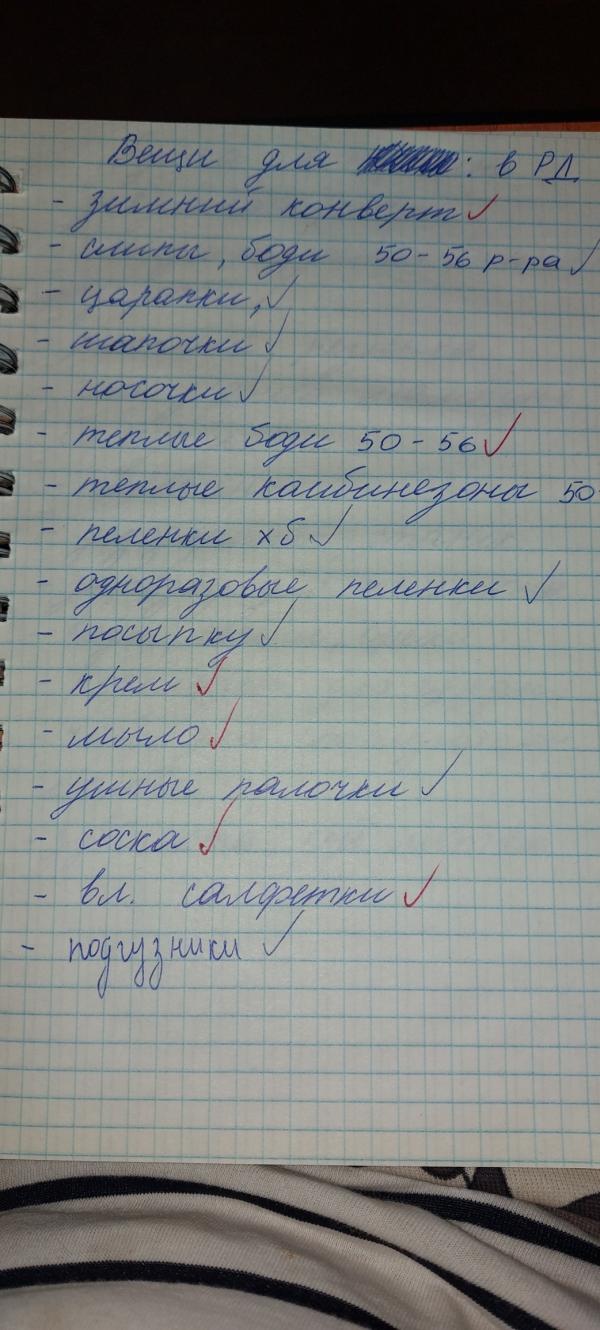 Вещи для : в РД
- зимний конверт ✓
- слипы, боди 50-56 р-ра ✓
- царапки, ✓
- шапочки ✓
- носочки ✓
- теплые боди 50-56 ✓
- теплые камбинезоны 50-
- пеленки хб ✓
- одноразовые пеленки ✓
- посыпку ✓
- крем ✓
- мыло ✓
- ушные палочки ✓
- соска ✓
- вл. салфетки ✓
- подгузники ✓